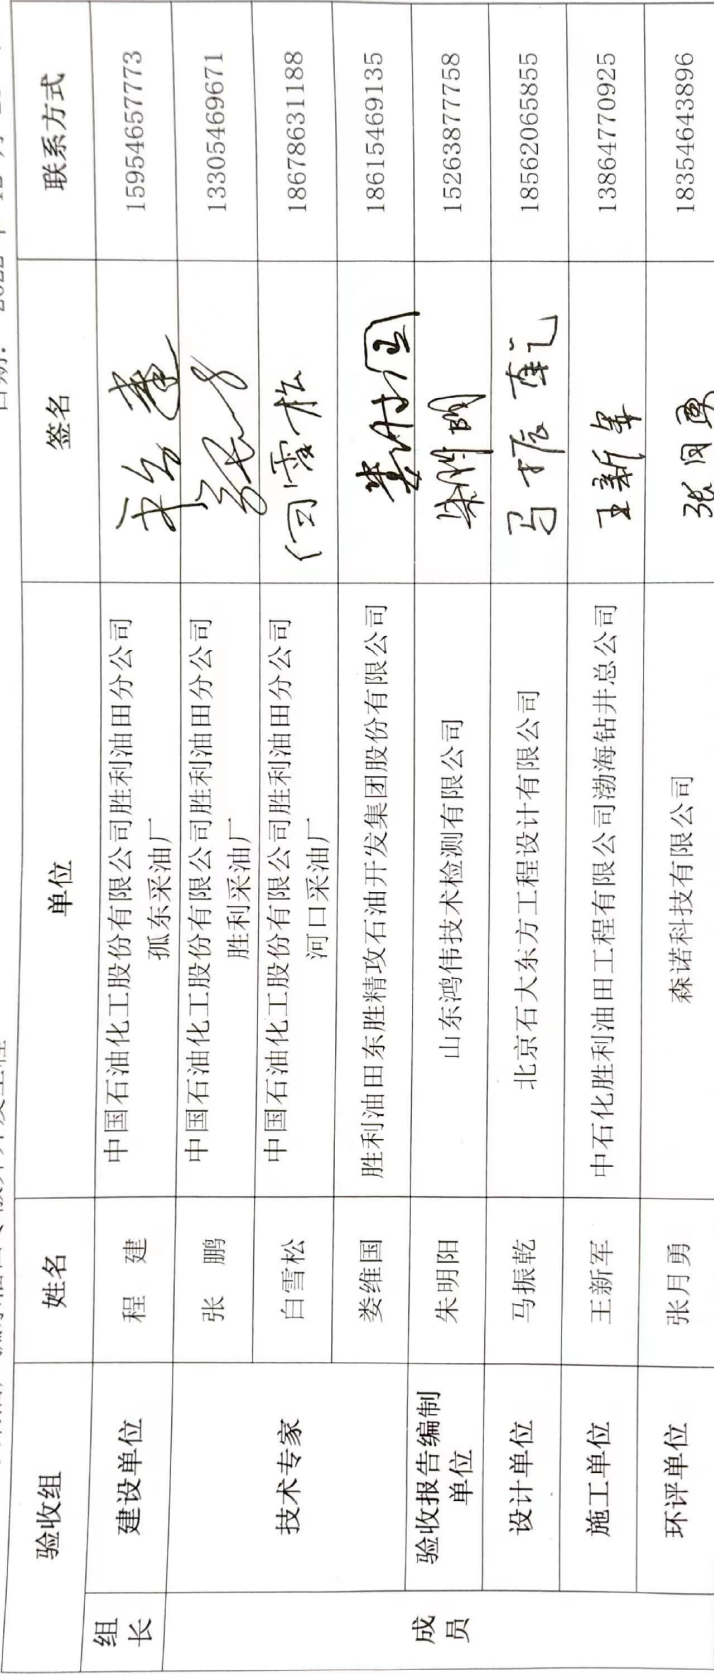 验收组 姓名 单位 签名 联系方式
组长 建设单位 程 建 中国石油化工股份有限公司胜利油田分公司 15954657773
孤东采油厂
成员 技术专家 张 鹏 中国石油化工股份有限公司胜利油田分公司 13305469671
胜利采油厂
白雪松 中国石油化工股份有限公司胜利油田分公司 白雪松 18678631188
河口采油厂
娄维国 胜利油田东胜精攻石油开发集团股份有限公司 18615469135
验收报告编制 朱明阳 山东鸿伟技术检测有限公司 15263877758
单位
设计单位 马振乾 北京石大东方工程设计有限公司 马振乾 18562065855
施工单位 王新军 中石化胜利油田工程有限公司渤海钻井总公司 王新军 13864770925
环评单位 张月勇 森诺科技有限公司 张月勇 18354643896